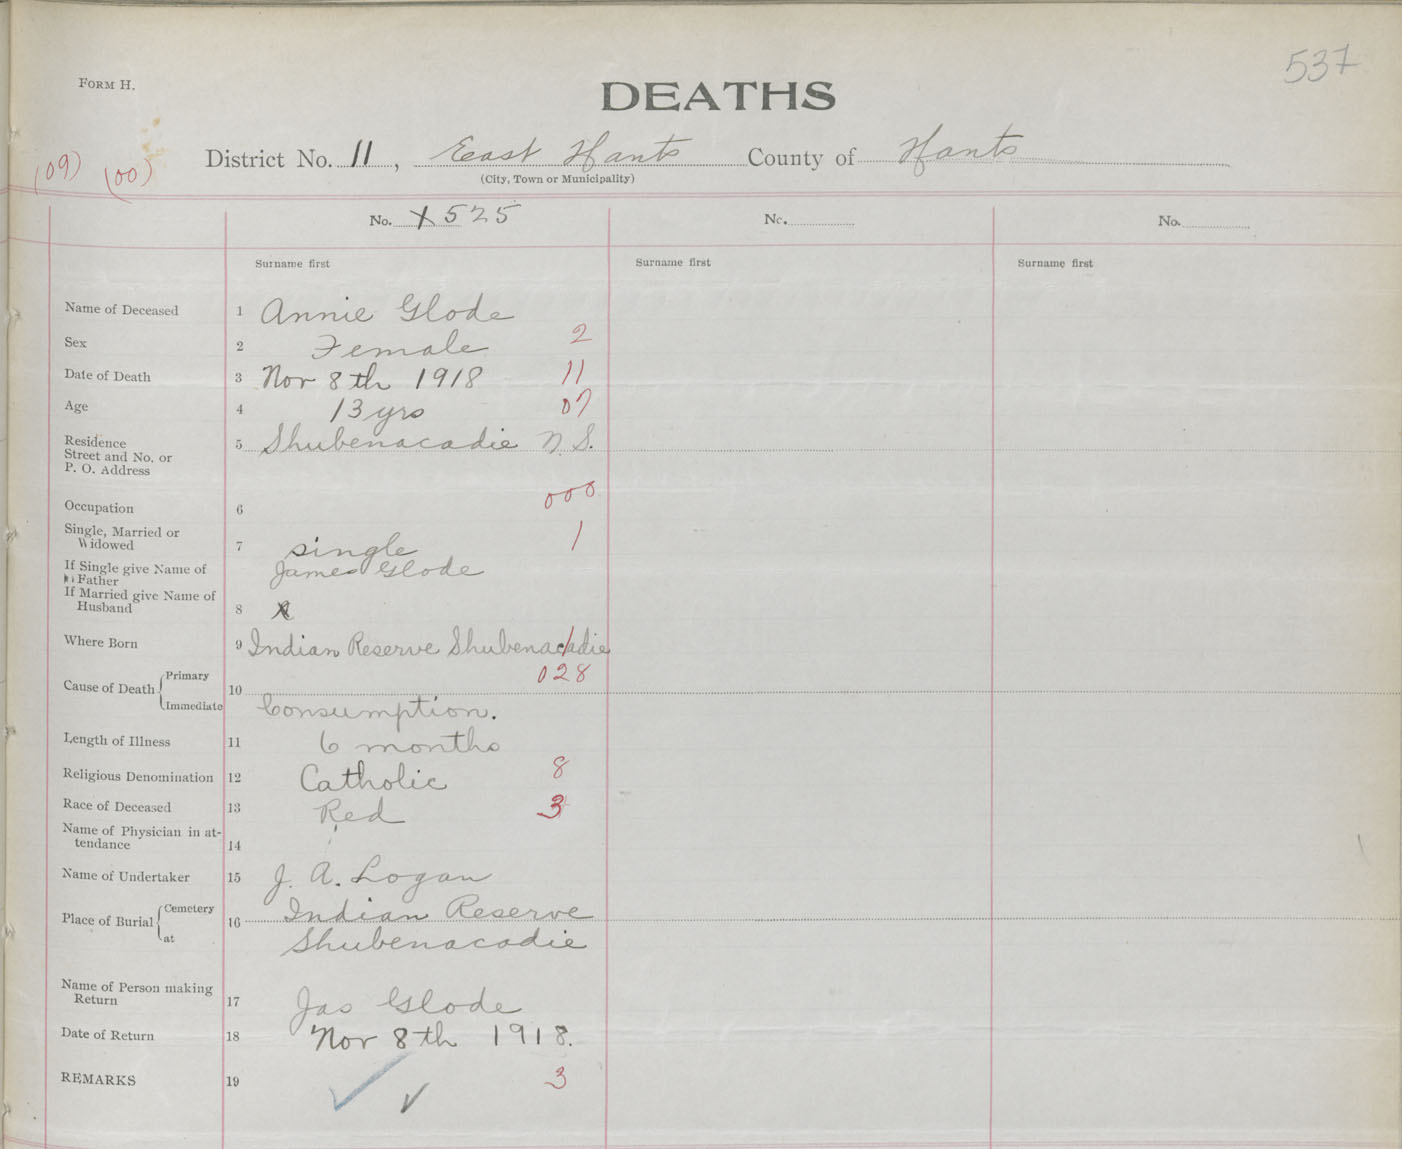 537
FORM H.
DEATHS
(09) (00)
District No. 11, East Hants County of Hants
(City, Town or Municipality)
No. X 525 No. No.
Surname first Surname first Surname first
Name of Deceased 1 Annie Glode
Sex 2 Female 2
Date of Death 3 Nov 8th 1918 11
Age 4 13 yrs 07
Residence 5 Shubenacadie N.S.
Street and No. or
P. O. Address
Occupation 6 000
Single, Married or
Widowed 7 single 1
If Single give Name of James Glode
Father
If Married give Name of
Husband 8
Where Born 9 Indian Reserve Shubenacadie 1
Cause of Death Primary 10 028
Immediate Consumption.
Length of Illness 11 6 months
Religious Denomination 12 Catholic 8
Race of Deceased 13 Red 3
Name of Physician in at-
tendance 14
Name of Undertaker 15 J. A. Logan
Place of Burial Cemetery 16 Indian Reserve
at Shubenacadie
Name of Person making
Return 17 Jas Glode
Date of Return 18 Nov 8th 1918.
REMARKS 19 3